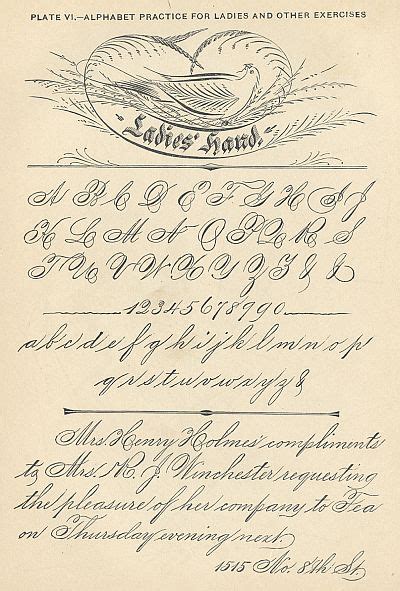 PLATE VI.—ALPHABET PRACTICE FOR LADIES AND OTHER EXERCISES
Ladies' Hand.
A B C D E F G H I J
K L M N O P Q R S
T U V W X Y Z & &
1234567890
a b c d e f g h i j k l m n o p
q r s t u v w x y z &
Mrs. Henry Holmes' compliments
to Mrs. R. J. Winchester requesting
the pleasure of her company to Tea
on Thursday evening next.
1515 No. 8th St.